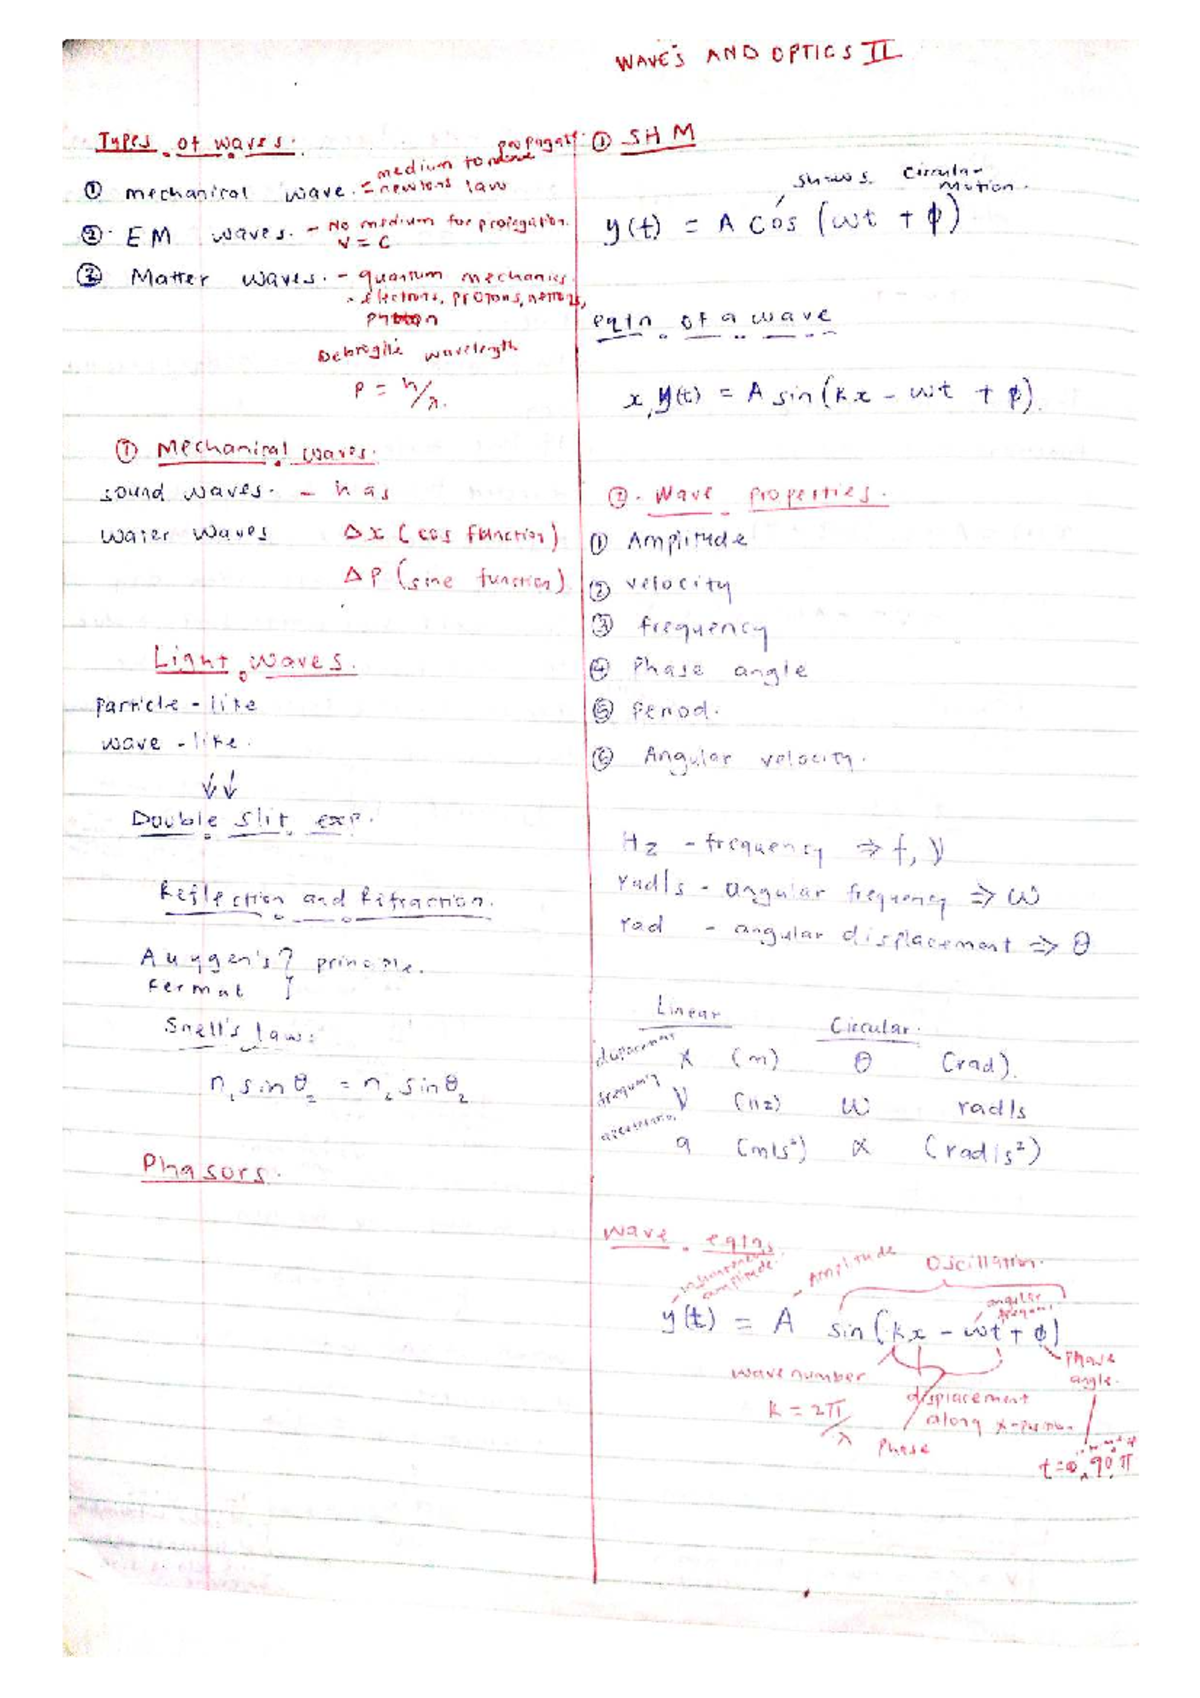 WAVE'S AND OPTICS II
Types of waves.
① mechanical wave. = medium to propagate
newtons law
②. EM waves. - No medium for propagation.
V = C
③ Matter waves. - quantum mechanics
- electrons, protons,
Debroglie wavelength
P = h/λ.
① Mechanical waves.
sound waves. - has
water waves Δx (cos function)
ΔP (sine function)
Light waves.
particle - like
wave - like.
↓↓
Double slit exp.
Reflection and Rifraction.
Auygen's } principle.
Fermat
Snell's law:
n₁ sin θ₂ = n₂ sin θ₂
Phasors.
① SHM
shows. Circular Motion.
y(t) = A cos (wt + ϕ)
eqtn of a wave
x, y(t) = A sin (kx - wt + ϕ).
②. Wave properties.
① Amplitude
② velocity
③ frequency
④ Phase angle
⑤ Period.
⑥ Angular velocity.
Hz - frequency ⇒ f, ν
rad/s - angular frequency ⇒ ω
rad - angular displacement ⇒ θ
Linear Circular.
displacement x (m) θ (rad).
frequency ν (Hz) ω rad/s
acceleration a (m/s²) α (rad/s²)
Wave eqtn.
- amplitude. - Amplitude Oscillation.
angular
y(t) = A sin (kx - wt + ϕ)
- Phase angle.
wave number
displacement
K = 2π/λ along
Phase
t=0, 90, π